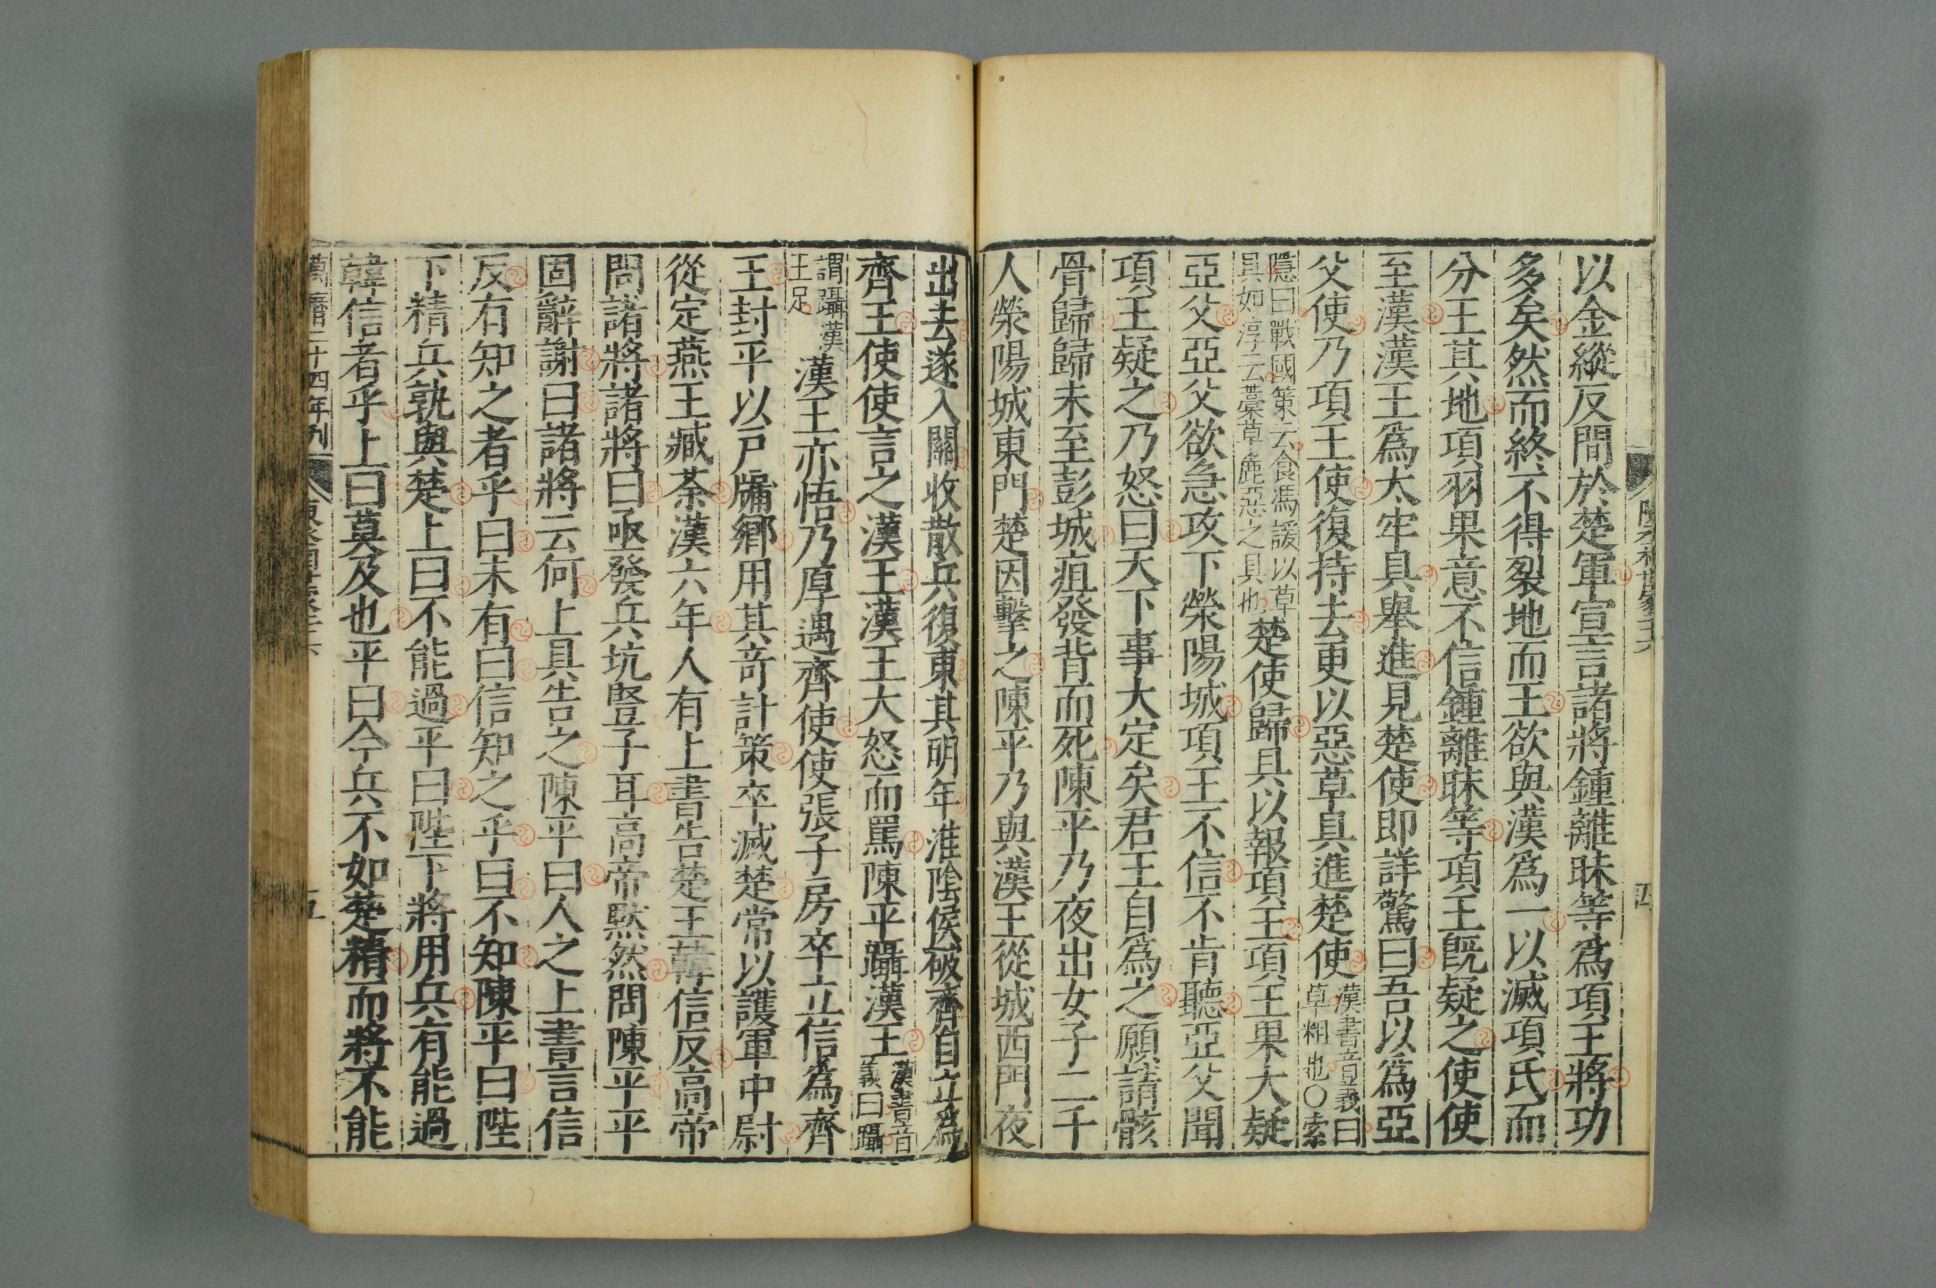 以金縱反間於楚軍宣言諸將鍾離昧等爲項王將功
多矣然而終不得裂地而王欲與漢爲一以滅項氏而
分王其地項羽果意不信鍾離昧等項王旣疑之使使
至漢漢王爲太牢具舉進見楚使即詳驚曰吾以爲亞
父使乃項王使復持去更以惡草具進楚使漢書音義曰草粗也〇索
隱曰戰國策云食馮諼以草具如淳云藁草麄惡之具也楚使歸具以報項王項王果大疑
亞父亞父欲急攻下滎陽城項王不信不肯聽亞父聞
項王疑之乃怒曰天下事大定矣君王自爲之願請骸
骨歸歸未至彭城疽發背而死陳平乃夜出女子二千
人滎陽城東門楚因擊之陳平乃與漢王從城西門夜
出去遂入關收散兵復東其明年淮陰侯破齊自立爲
齊王使使言之漢王漢王大怒而罵陳平躡漢王漢書音義曰躡
謂躡漢王足漢王亦悟乃厚遇齊使使張子房卒立信爲齊
王封平以戶牖鄉用其奇計策卒滅楚常以護軍中尉
從定燕王臧荼漢六年人有上書告楚王韓信反高帝
問諸將諸將曰亟發兵坑豎子耳高帝默然問陳平平
固辭謝曰諸將云何上具告之陳平曰人之上書言信
反有知之者乎曰未有曰信知之乎曰不知陳平曰陛
下精兵孰與楚上曰不能過平曰陛下將用兵有能過
韓信者乎上曰莫及也平曰今兵不如楚精而將不能
萬曆二十四年刊
五